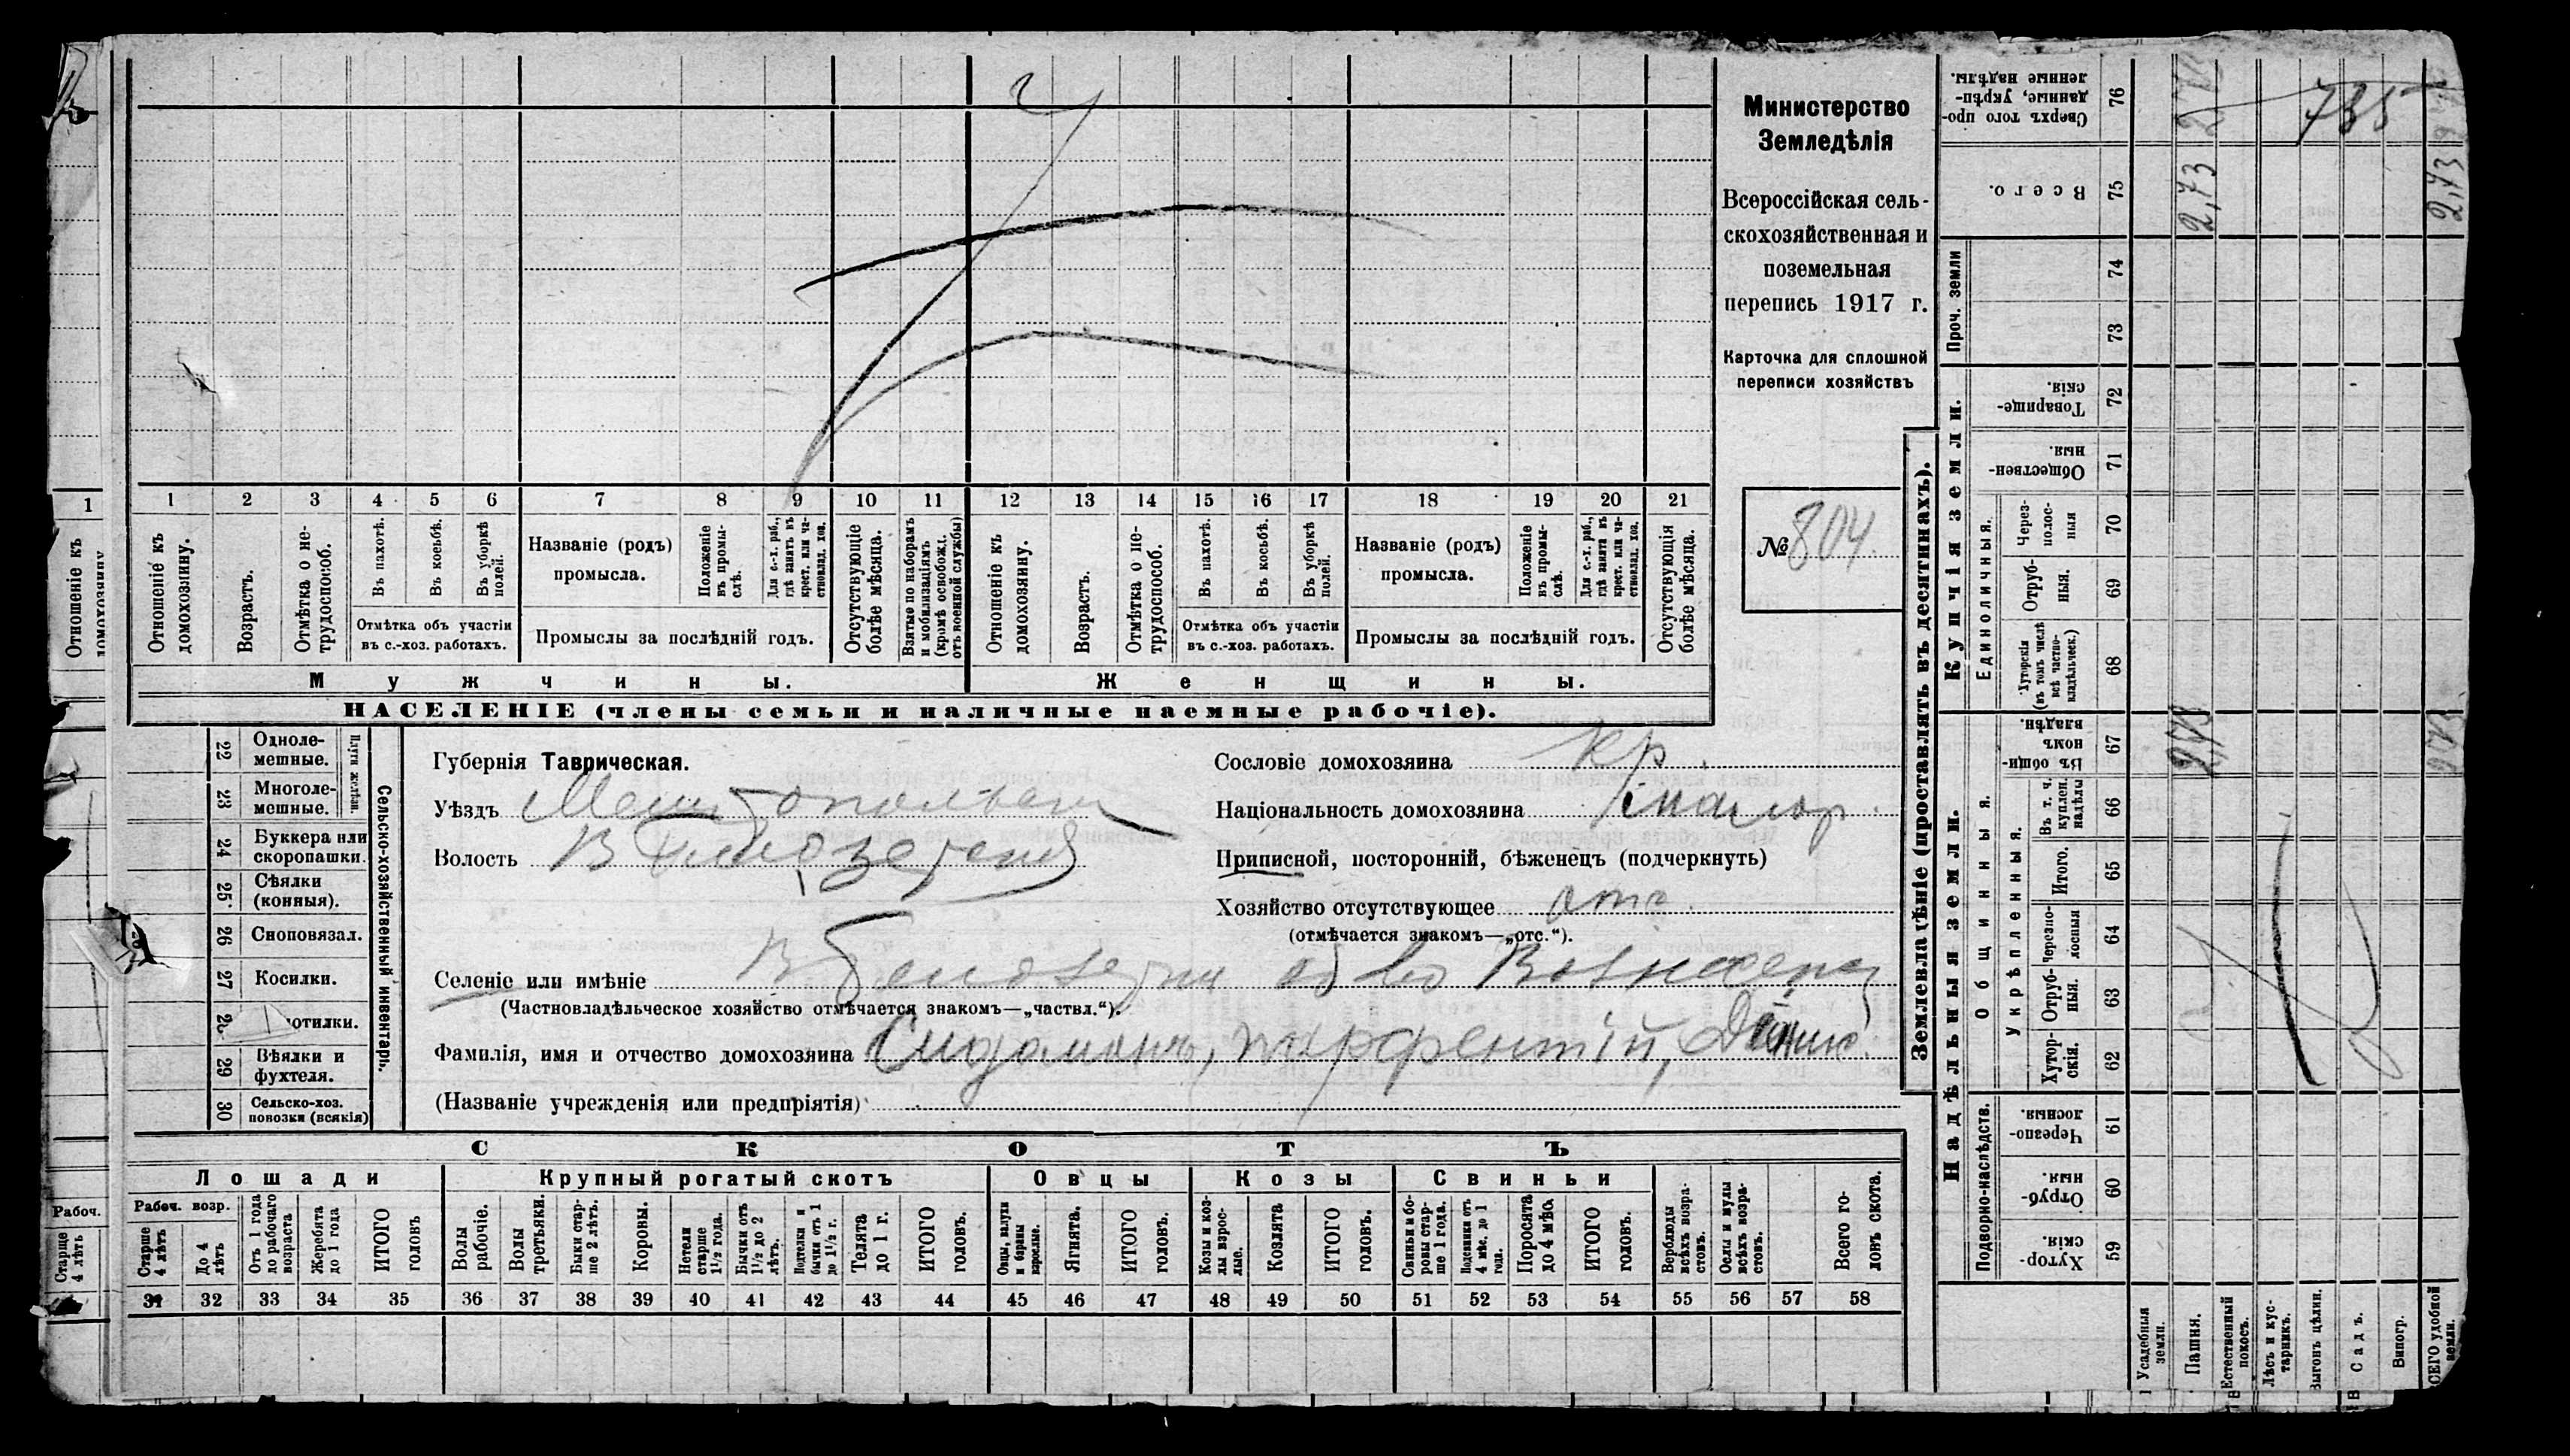 Министерство
Земледѣлія
Всероссійская сель-
скохозяйственная и
поземельная
перепись 1917 г.
Карточка для сплошной
переписи хозяйствъ
№ 804.
1
Отношеніе къ
домохозяину
1 2 3 4 5 6 7 8 9 10 11 12 13 14 15 16 17 18 19 20 21
Отношеніе къ
домохозяину.
Возрастъ.
Отмѣтка о не-
трудоспособ.
Въ пахотѣ.
Въ косьбѣ.
Въ уборкѣ
полей.
Отмѣтка объ участіи
въ с.-хоз. работахъ.
Названіе (родъ)
промысла.
Положеніе
въ промы-
слѣ.
Для с.-х. раб.,
гдѣ занятъ въ
крест. или ча-
стновлад. хоз.
Промыслы за послѣдній годъ.
Отсутствующіе
болѣе мѣсяца.
Взятые по наборамъ
и мобилизаціямъ
(кромѣ освобожд.
отъ военной службы)
Отношеніе къ
домохозяину.
Возрастъ.
Отмѣтка о не-
трудоспособ.
Въ пахотѣ.
Въ косьбѣ.
Въ уборкѣ
полей.
Отмѣтка объ участіи
въ с.-хоз. работахъ.
Названіе (родъ)
промысла.
Положеніе
въ промы-
слѣ.
Для с.-х. раб.,
гдѣ занята въ
крест. или ча-
стновлад. хоз.
Промыслы за послѣдній годъ.
Отсутствующія
болѣе мѣсяца.
Мужчины.
Женщины.
НАСЕЛЕНІЕ (члены семьи и наличные наемные рабочіе).
Сельско-хозяйственный инвентарь.
Плуги желѣзн.
22 Одноле-
мешные.
23 Многоле-
мешные.
24 Буккера или
скоропашки.
25 Сѣялки
(конныя).
26 Сноповязал.
27 Косилки.
отилки.
29 Вѣялки и
фухтеля.
30 Сельско-хоз.
повозки (всякія)
Губернія Таврическая.
Уѣздъ
Волость
Сословіе домохозяина кр.
Національность домохозяина малор.
Приписной, посторонній, бѣженецъ (подчеркнуть)
Хозяйство отсутствующее отс.
(отмѣчается знакомъ—„отс.“).
Селеніе или имѣніе
(Частновладѣльческое хозяйство отмѣчается знакомъ—„частвл.“).
Фамилія, имя и отчество домохозяина
(Названіе учрежденія или предпріятія)
СКОТЪ
Лошади
Крупный рогатый скотъ
Овцы
Козы
Свиньи
Рабоч.
Старше
4 лѣтъ
Рабоч. возр.
Старше
4 лѣтъ
До 4
лѣтъ
Отъ 1 года
до рабочаго
возраста
Жеребята
до 1 года
ИТОГО
головъ
Волы
рабочіе.
Волы
третьяки.
Быки стар-
ше 2 лѣтъ.
Коровы.
Нетели
старше
1½ года.
Бычки отъ
1½ до 2
лѣтъ.
Подтелки и
бычки отъ 1
до 1½ г.
Телята
до 1 г.
ИТОГО
головъ.
Овцы, валухи
и бараны
взрослые.
Ягнята.
ИТОГО
головъ.
Козы и коз-
лы взрос-
лые.
Козлята
ИТОГО
головъ.
Свиньи и бо-
ровы стар-
ше 1 года.
Подсвинки отъ
4 мѣс. до 1
года.
Поросята
до 4 мѣс.
ИТОГО
головъ.
Верблюды
всѣхъ возра-
стовъ.
Ослы и мулы
всѣхъ возра-
стовъ.
Всего го-
ловъ скота.
31 32 33 34 35 36 37 38 39 40 41 42 43 44 45 46 47 48 49 50 51 52 53 54 55 56 57 58
Землевладѣніе (проставлять въ десятинахъ).
Сверхъ того про-
данные, укрѣп-
ленные надѣлы.
76
735
Всего.
75
2,73
2,73
Проч. земли
74
73
Купчія земли.
Товарище-
скія.
72
Обществен-
ныя
71
Единоличныя.
Через-
полос-
ныя
70
Отруб-
ныя.
69
Хуторскія
(въ томъ числѣ
всѣ частно-
владѣльческ.)
68
Надѣльныя земли.
Общинныя.
Въ общи-
номъ
владѣн.
67
2,73
Укрѣпленныя.
Въ т. ч.
куплен.
надѣлы
66
Итого.
65
Черезпо-
лосныя
64
Отруб-
ныя.
63
Хутор-
скія.
62
Подворно-наслѣдств.
Черезпо-
лосныя.
61
Отруб-
ныя.
60
Хутор-
скія.
59
Усадебныя
земли.
Пашня.
Естественный
покосъ.
Лѣсъ и кус-
тарникъ.
Выгонъ цѣлин.
Садъ.
Виногр.
ВСЕГО удобной
земли.